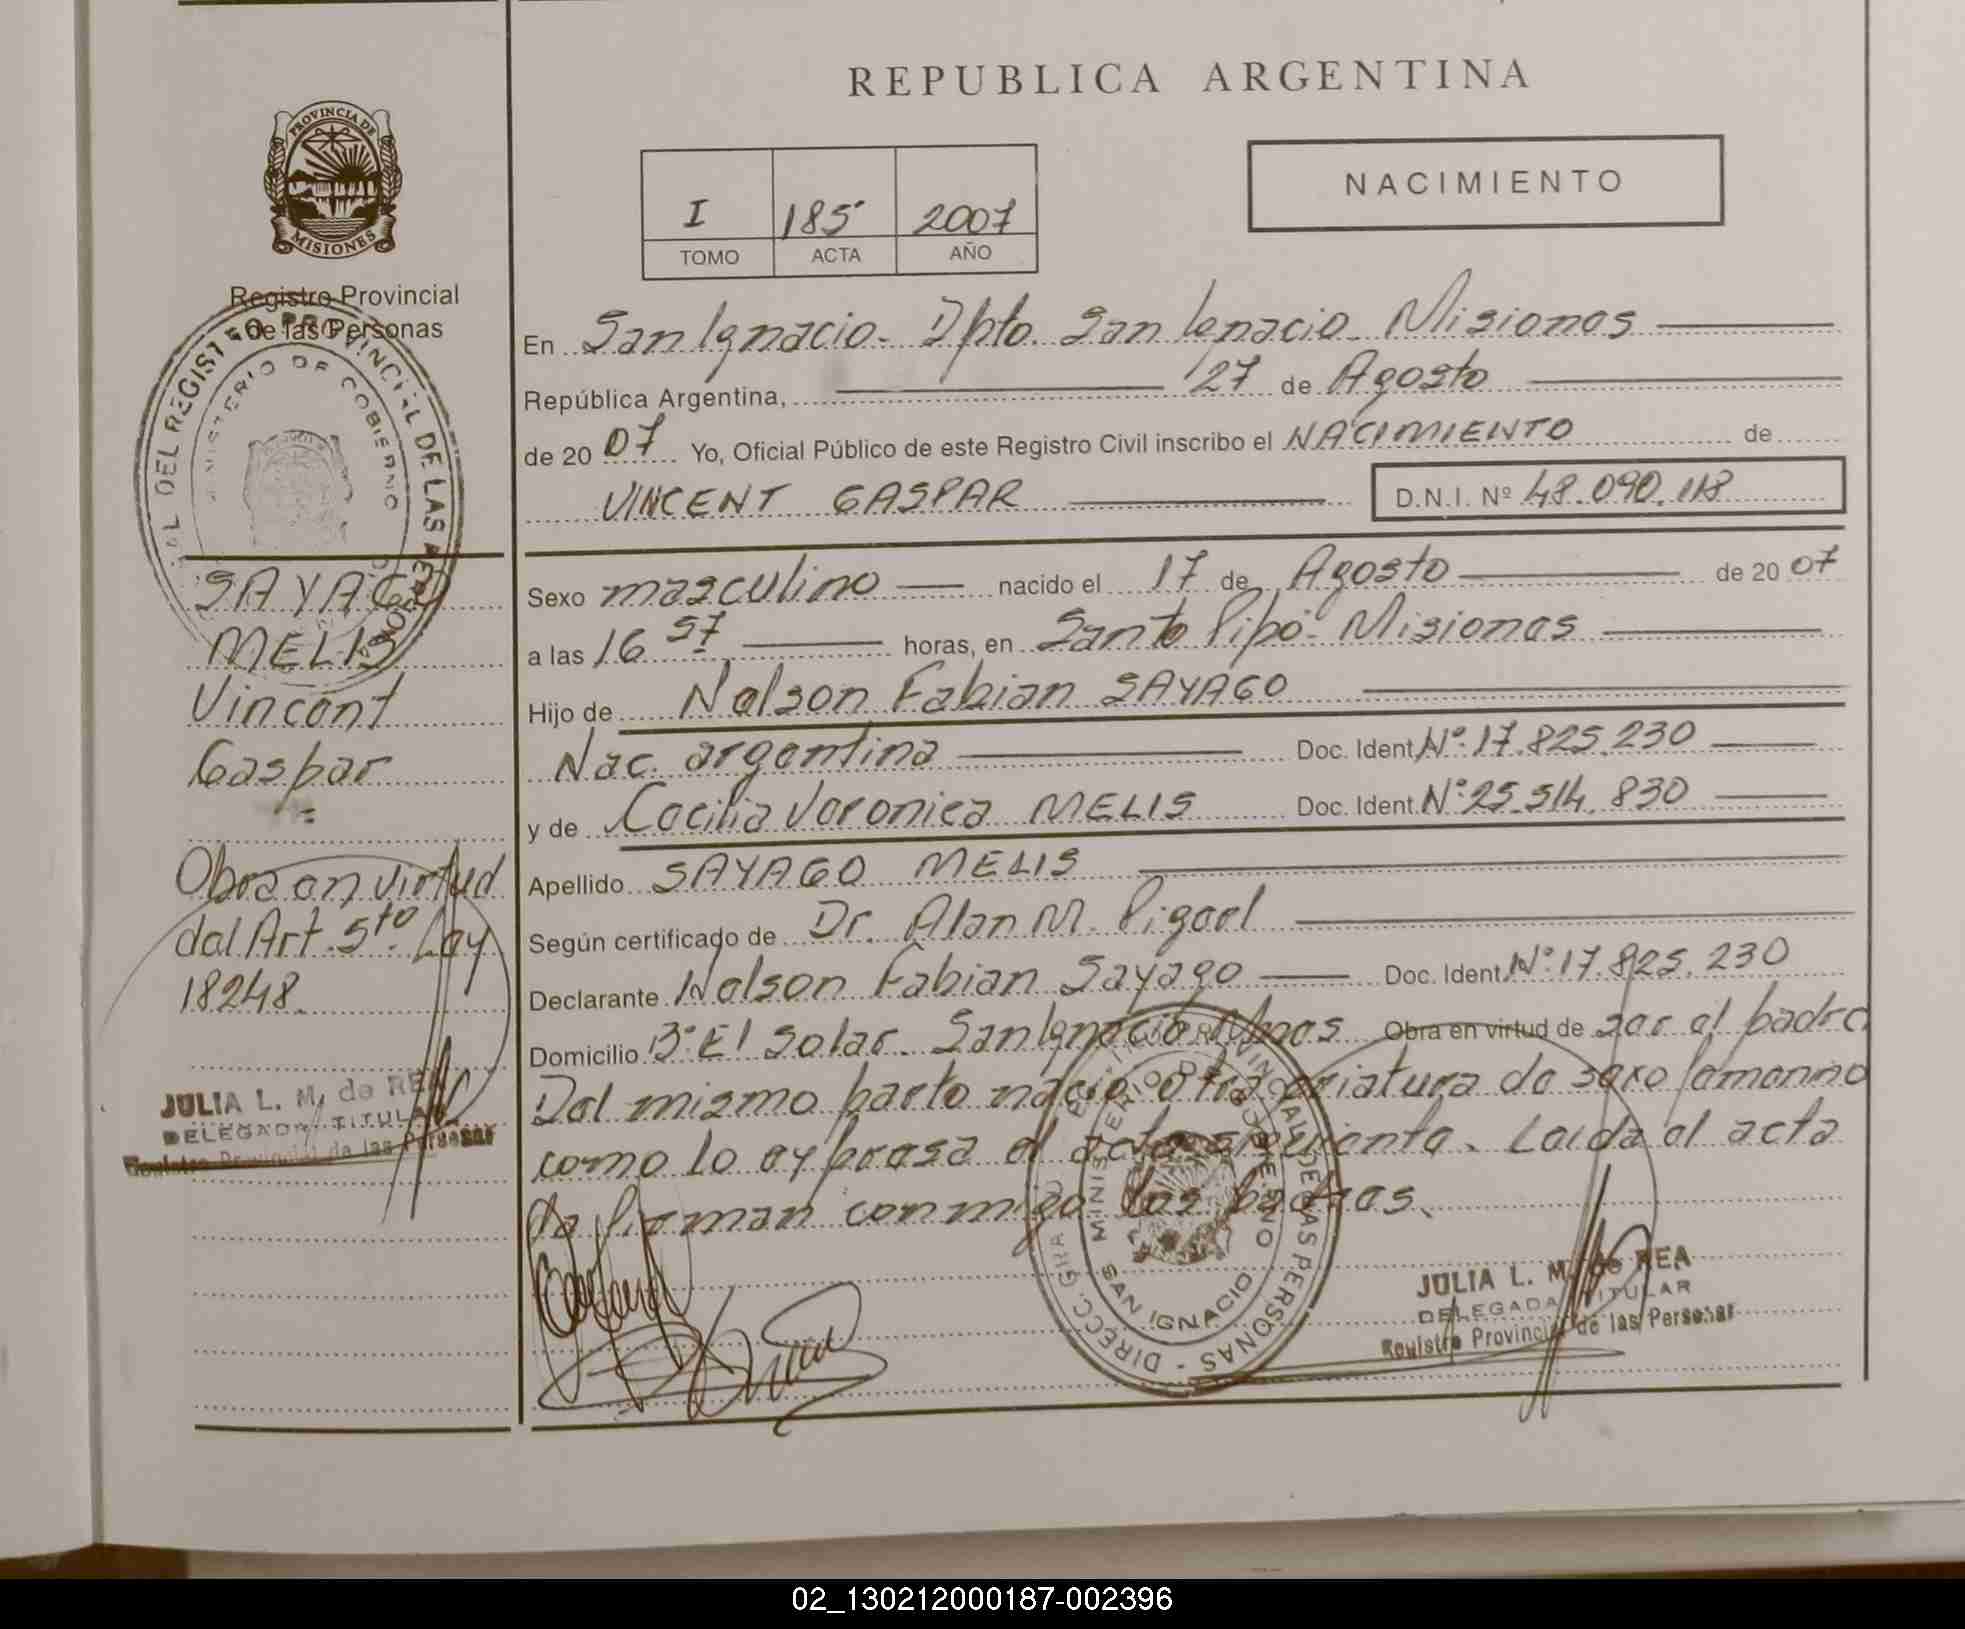 REPUBLICA ARGENTINA
PROVINCIA DE
MISIONES
I 185 2007
TOMO ACTA AÑO
NACIMIENTO
Registro Provincial
de las Personas
En San Ignacio. Dpto. San Ignacio Misiones
República Argentina, 27 de Agosto
de 2007 Yo, Oficial Público de este Registro Civil inscribo el NACIMIENTO de
VINCENT GASPAR D.N.I. Nº 48.090.118
SAYAGO
MELIS
Vincent
Gaspar
Obra en virtud
del Art. 5to. Ley
18248.
JULIA L. M. de REA
DELEGADA TITULAR
Registro Provincial de las Personas
Sexo masculino nacido el 17 de Agosto de 2007
a las 16 57 horas, en Santo Pipó - Misiones
Hijo de Nelson Fabian SAYAGO
Nac. argentina Doc. Ident. Nº 17.825.230
y de Cecilia Veronica MELIS Doc. Ident. Nº 25.514.830
Apellido SAYAGO MELIS
Según certificado de Dr. Alan M. Pigerl
Declarante Nelson Fabian Sayago Doc. Ident. Nº 17.825.230
Domicilio Bº El Solar. San Ignacio Mnes Obra en virtud de ser el padre
Del mismo parto nació otra criatura de sexo femenino
como lo expresa el acta siguiente. Leida el acta
la firman conmigo los padres.
DIRECC. GRAL DEL REGISTRO PROVINCIAL DE LAS PERSONAS
MINISTERIO DE GOBIERNO
SAN IGNACIO
JULIA L. M. de REA
DELEGADA TITULAR
Registro Provincial de las Personas
02_130212000187-002396